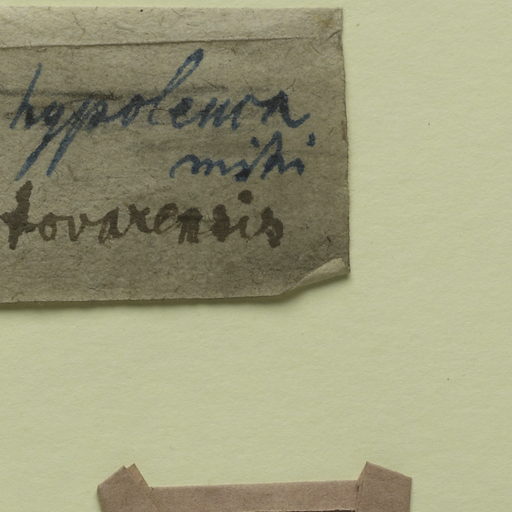 hypoleuca
mihi
tovarensis